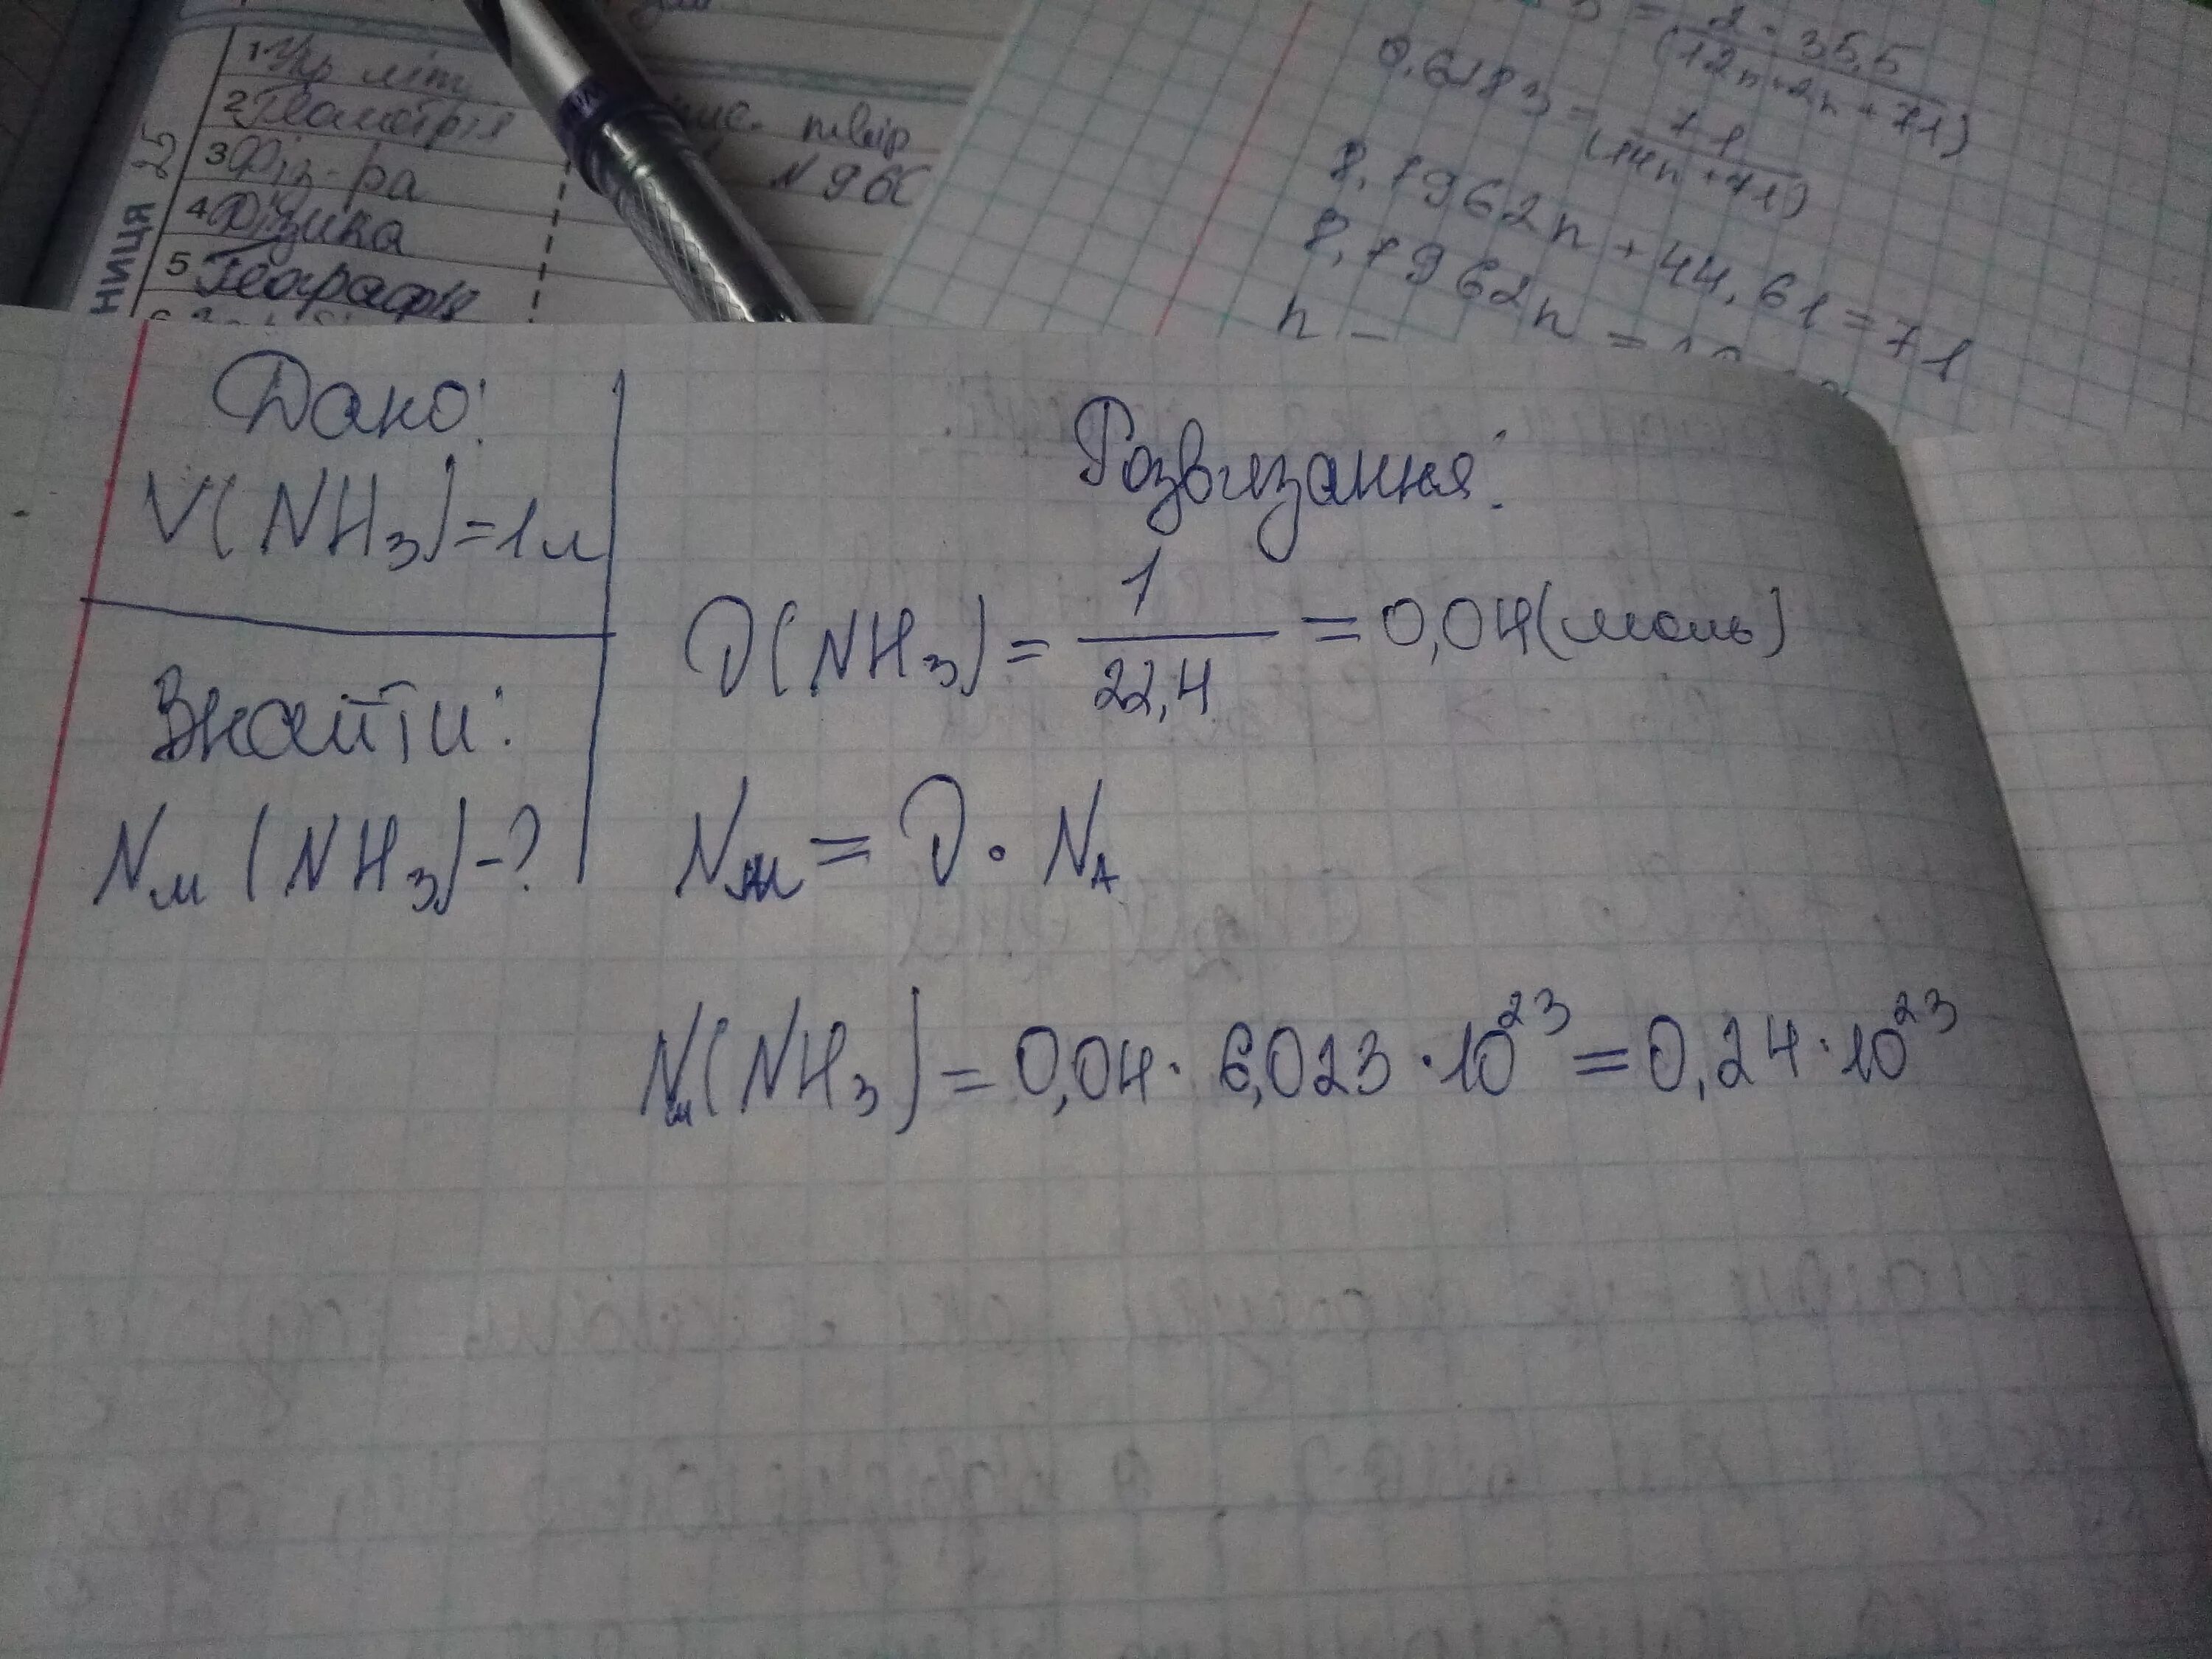 1 Укр літ
2 Геометрія
3 Фіз-ра
4 Фізика
5 Географія
ниця
твір
N 960
= 2·35,5
(12n+2n+71)
0,6283 = 71
(14n+71)
8,7962n + 44,61 = 71
8,7962n =
n =
Дано:
V(NH3)=1л
Знайти:
Nм (NH3)-?
Розвязання:
ν(NH3) = 1/22,4 = 0,04(моль)
Nм = ν · NA
Nм(NH3) = 0,04 · 6,023 · 10^23 = 0,24 · 10^23